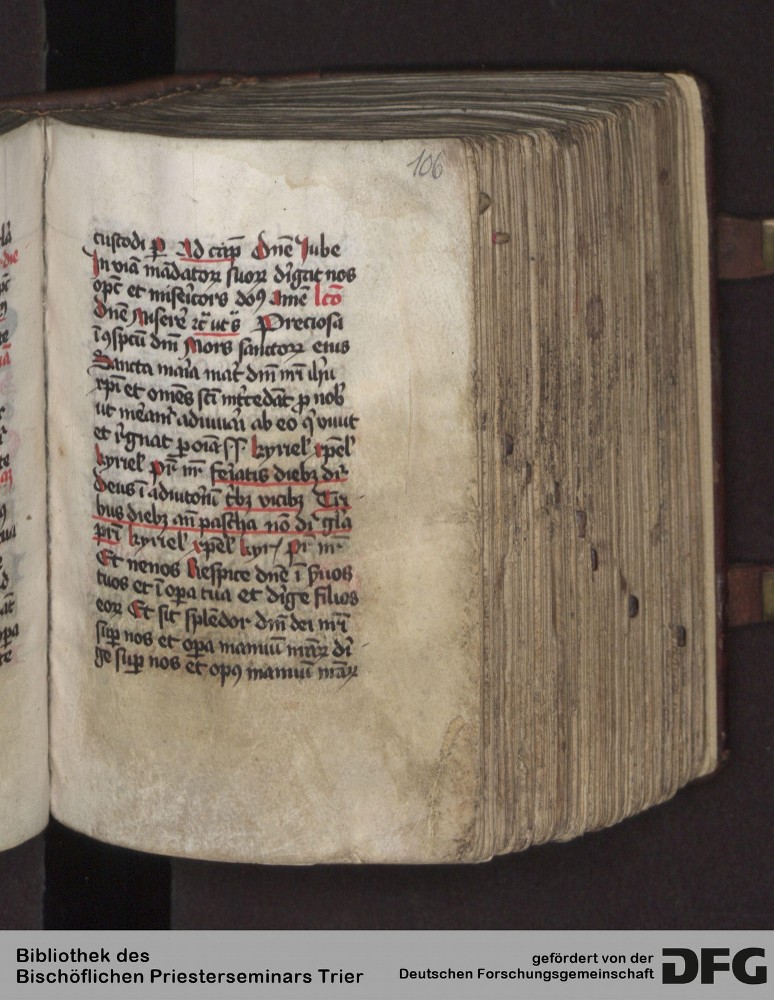 106
custodi ꝑ Ad cap̄ Dn̄e Jube
In viā mādatoꝝ suoꝝ diꝛigat nos
opc̄ et miseꝛicors do9 amē lcō
Dn̄e Miseꝛe ut s̄ Preciosa
ī 9spcū dn̄i Mors sanctoꝝ eius
Sancta maꝛia mat̄ dn̄i nr̄i ih̄u
xp̄i et om̄es sc̄i intcedāt ꝓ nob̄
ut meam̄ adiuuaꝛi ab eo q̄ viuit
et regnat ꝑ oīa ſſ kyriel̄ xpēl̄
kyriel̄ pr̄ nr̄ feꝛiatis diebꝫ dr̄
Deus ī adiutoꝛiū tꝛbꝫ vicibꝫ Tri
bus diebꝫ an̄ pascha nō dr̄ gl̄a
pr̄i kyriel̄ xpēl̄ kyr̄ pr̄ nr̄
Et nenos Respice dn̄e ī s̄uos
tuos et ī opa tua et diꝛige filios
eoꝝ Et sit splēdor dn̄i dei nr̄i
suꝑ nos et opa manuū nr̄aꝝ di
ge suꝑ nos et op9 manuū nr̄aꝝ
Bibliothek des
Bischöflichen Priesterseminars Trier
gefördert von der
Deutschen Forschungsgemeinschaft
DFG